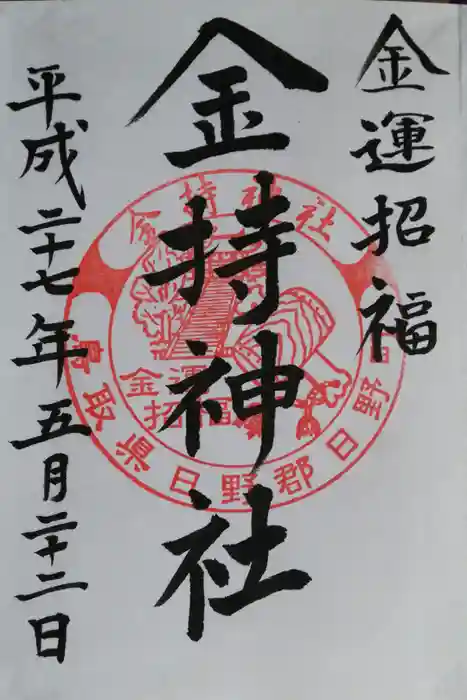 金運招福
金持神社
平成二十七年五月二十二日
金持神社
金運
招福
鳥取県日野郡日野